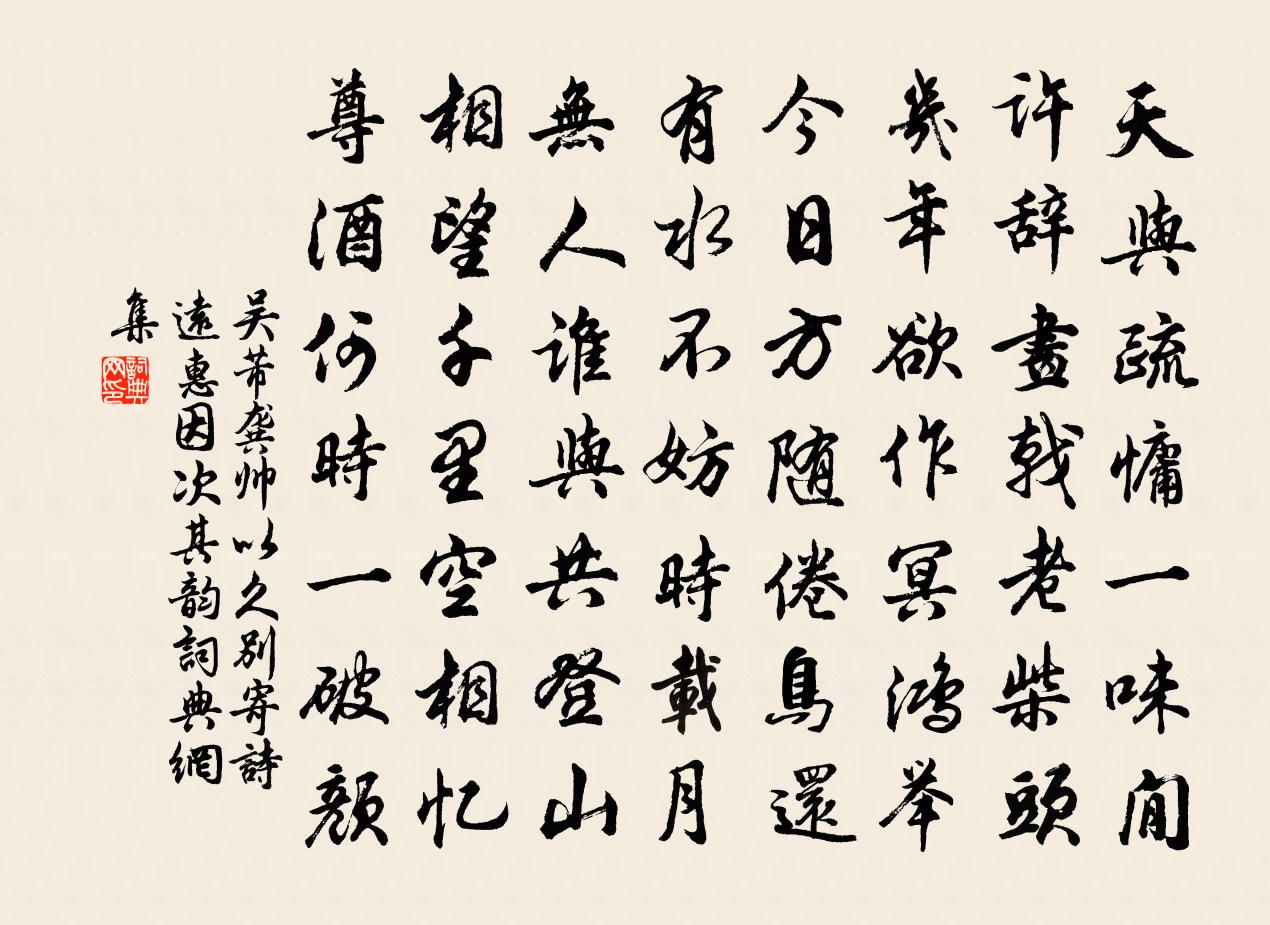 天與疏慵一味閒
許辞畫戟老柴頭
幾年欲作冥鴻举
今日方随倦鳥還
有水不妨時載月
無人誰與共登山
相望千里空相忆
尊酒何時一破顔
吴芾龚帅以久别寄詩
遠惠因次其韵詞典網
集
詞典网印